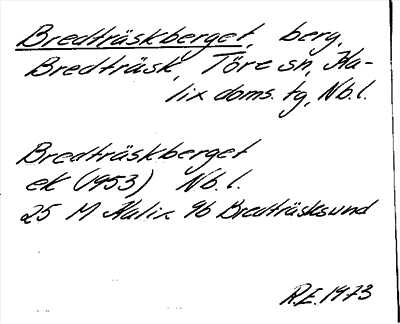 Bredträskberget, berg,
Bredträsk, Töre sn, Ka-
lix doms. tg, Nb.l.
Bredträskberget
ek (1953) Nb.l.
25 M Kalix 9b Bredträsksund
R.E. 1973